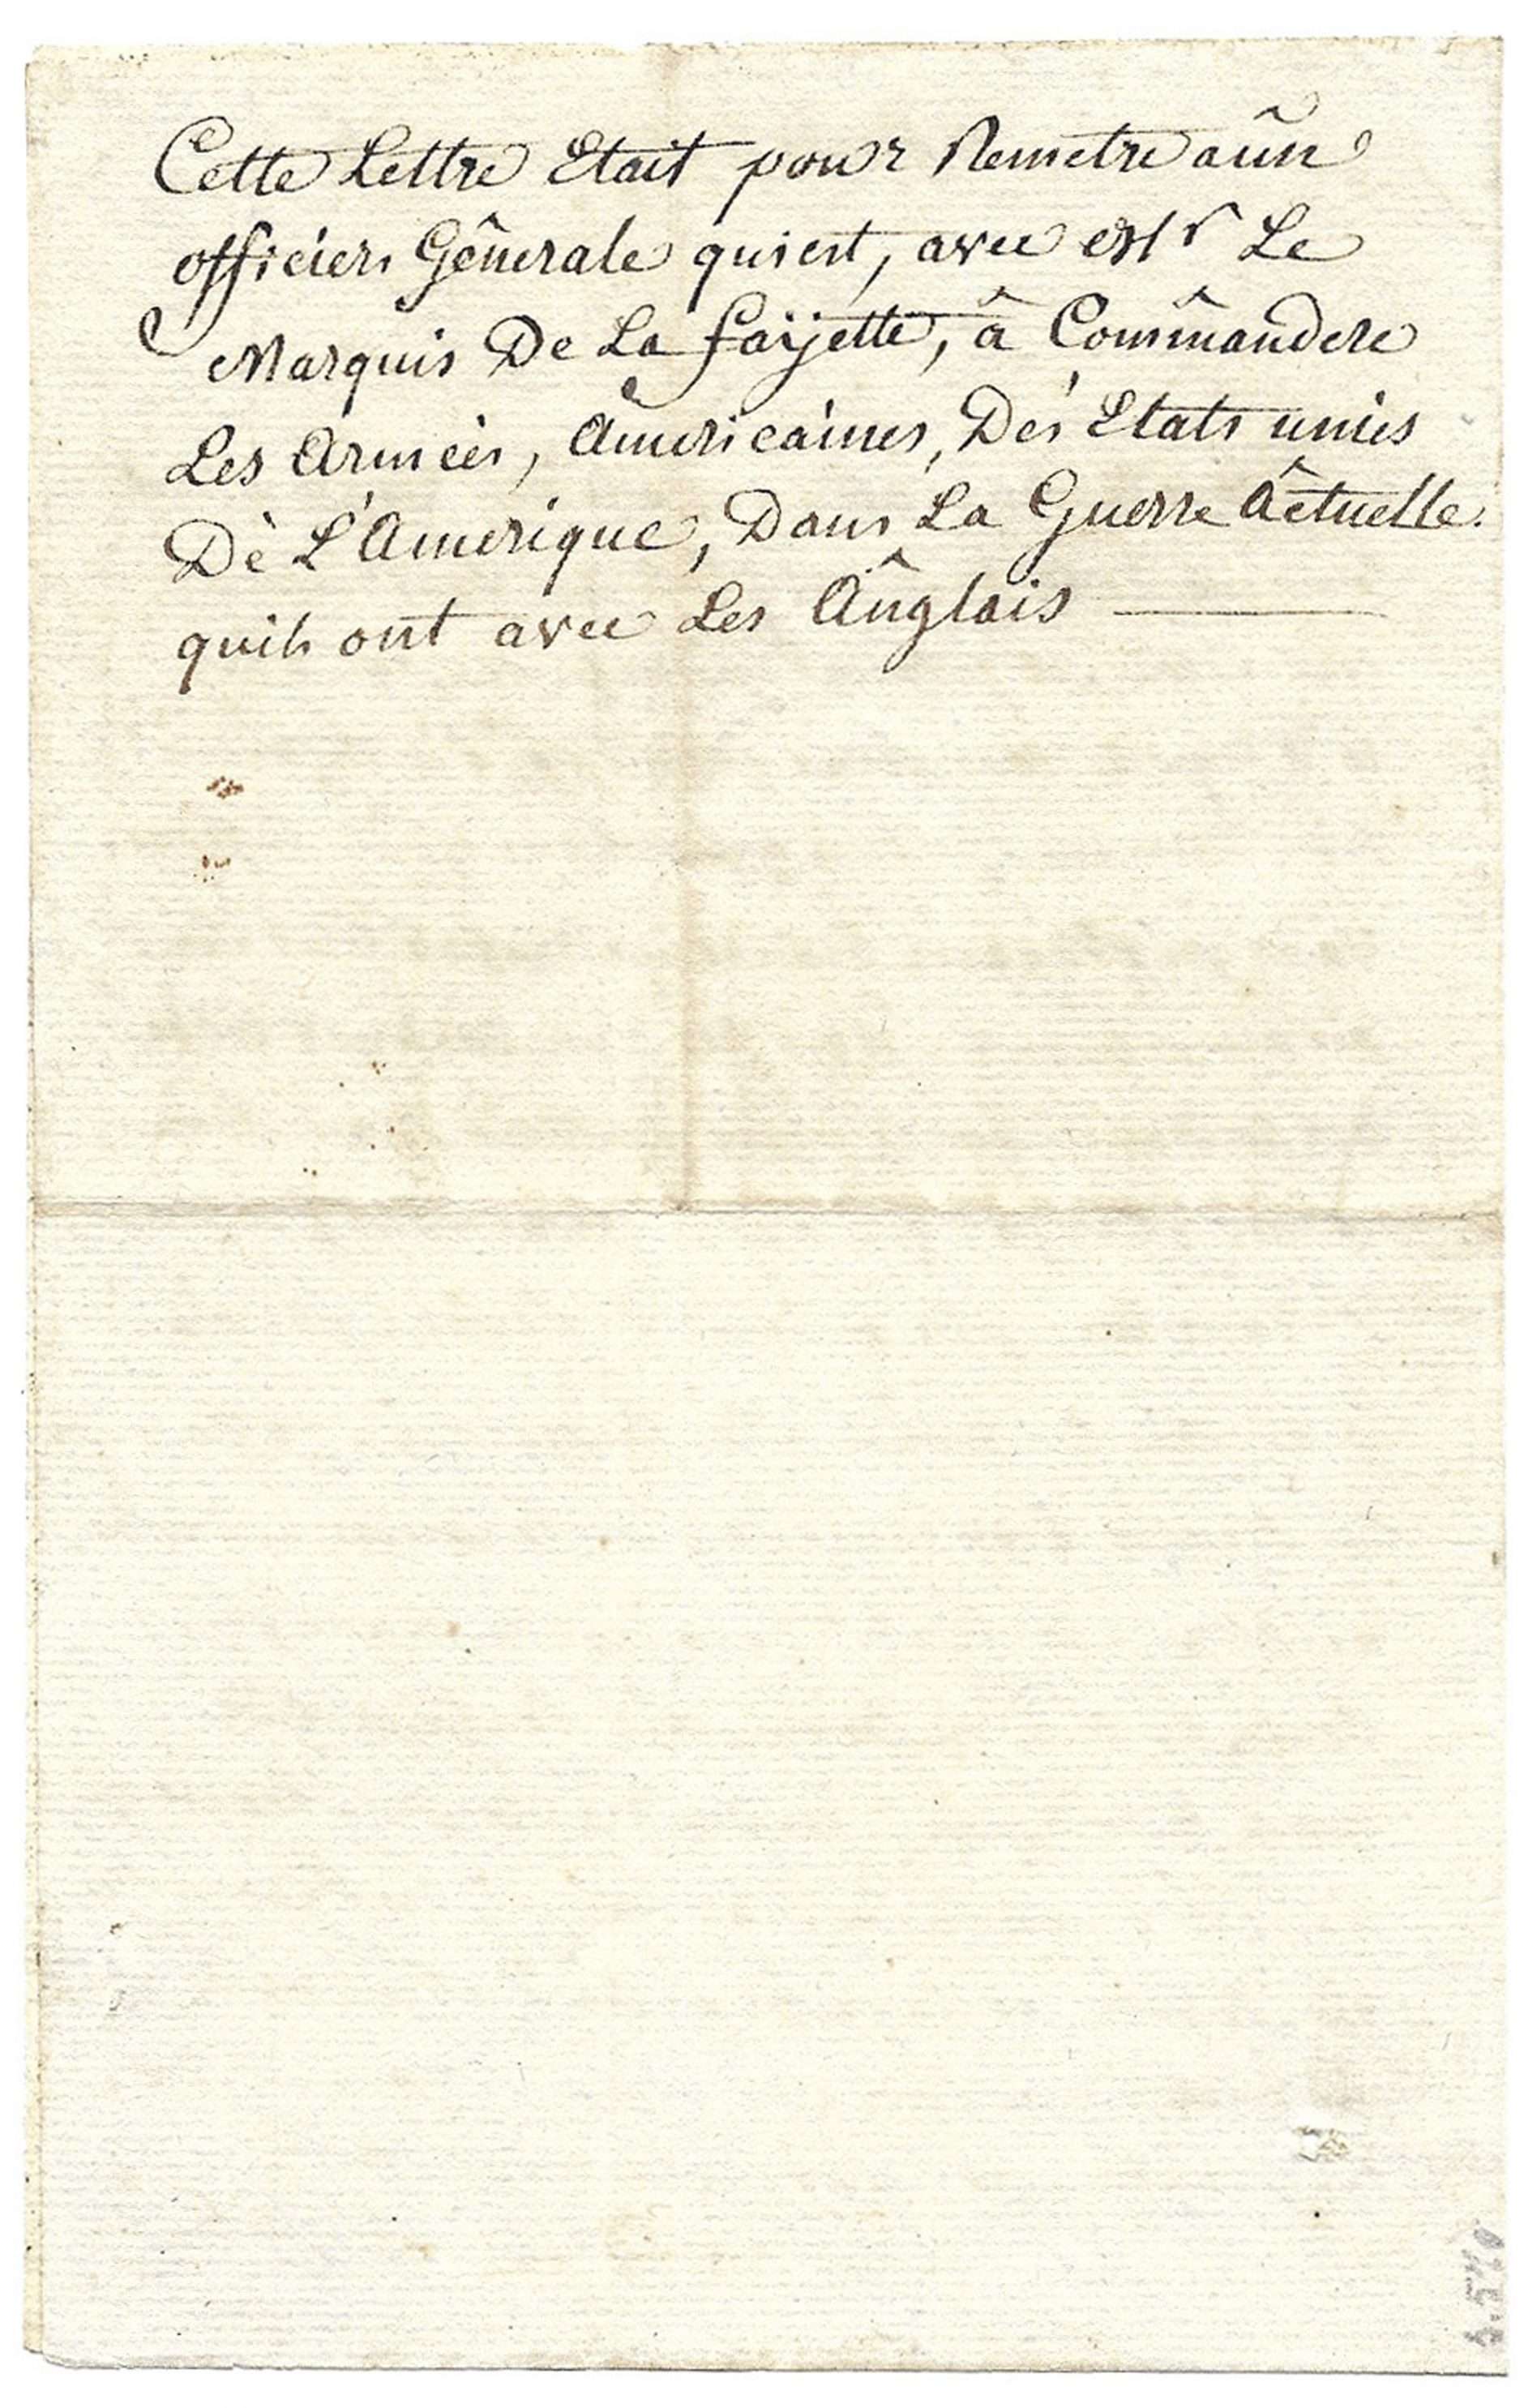 Cette Lettre Etait pour Remetre aûn
officiers Gênerale qui est, avec Mr Le
Marquis De La faÿette, â Commândere
Les Armées, Âmericaines, Des Etats unies
Dè L'Amerique, Dans La Guerre Âctuelle.
quils ont avec Les Ânglais